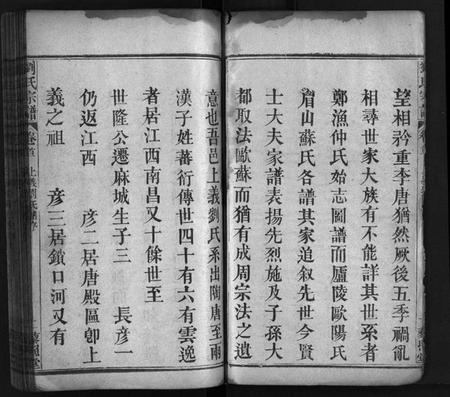 望相矜重李唐猶然厥後五季禍亂
相尋世家大族有不能詳其世系者
鄭漁仲氏始志圖譜而廬陵歐陽氏
眉山蘇氏各譜其家追叙先世今賢
士大夫家譜表揚先烈施及子孫大
都取法歐蘇而猶有成周宗法之遺
意也吾邑上義劉氏系出陶唐至兩
漢子姓蕃衍傳世四十有六有雲逸
者居江西南昌又十餘世至
世隆公遷麻城生子三 長彥一
仍返江西 彥二居唐殿區卽上
義之祖 彥三居鎖口河又有
劉氏宗譜 卷首